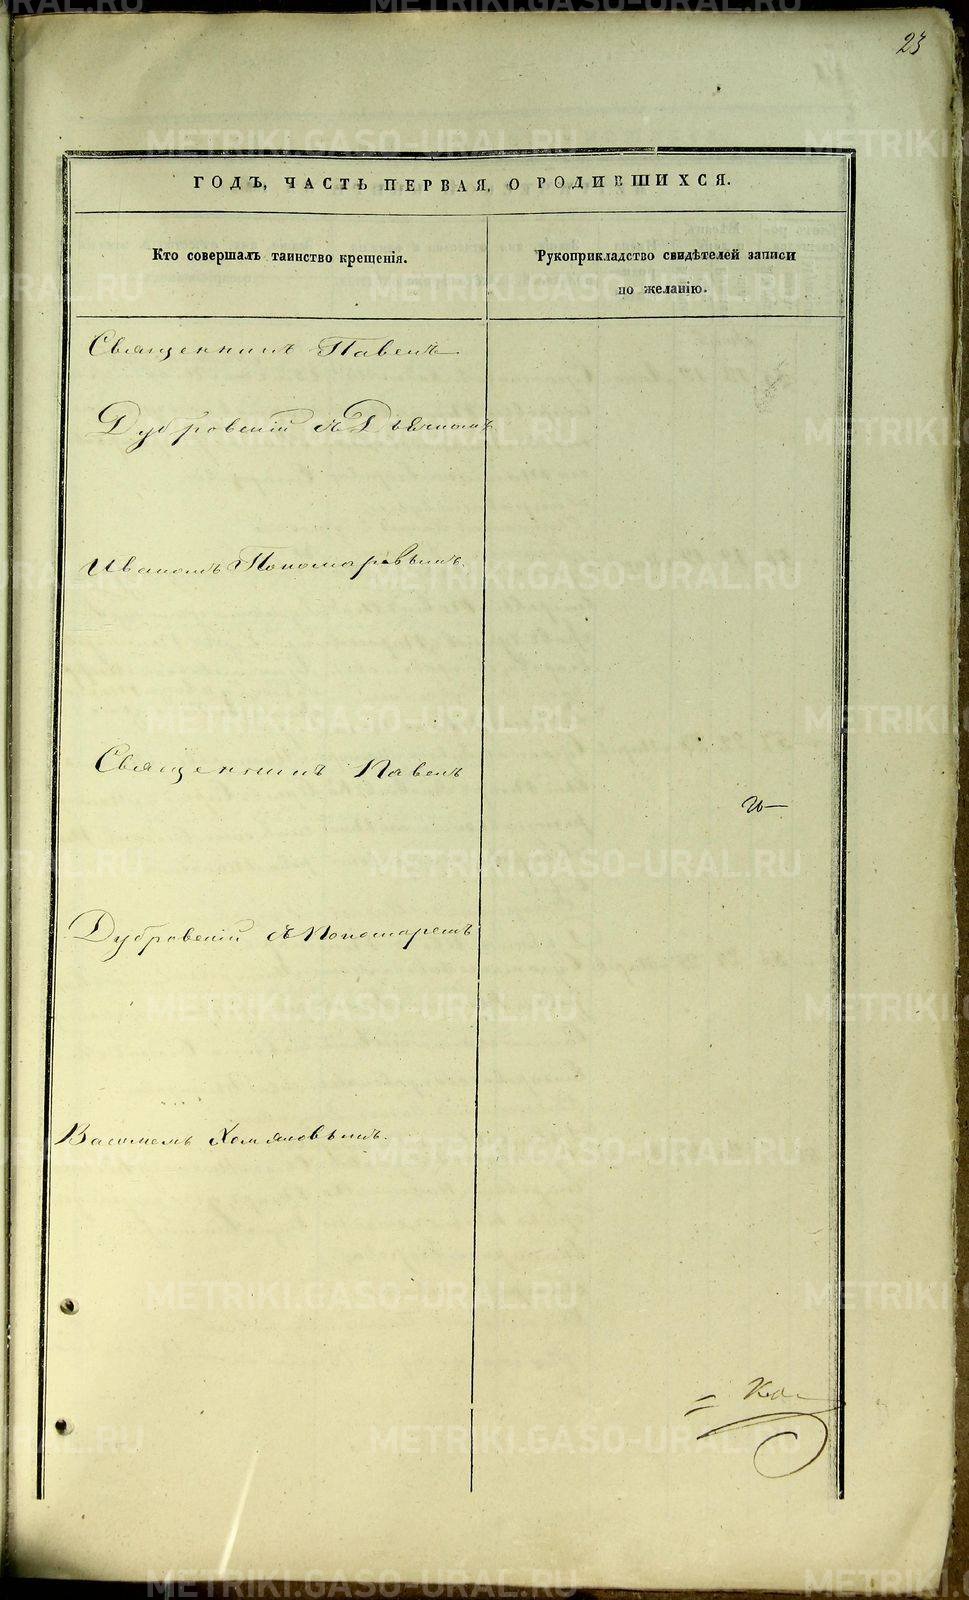 23
ГОДЪ, ЧАСТЬ ПЕРВАЯ, О РОДИВШИХСЯ.
Кто совершалъ таинство крещенія.
Рукоприкладство свидѣтелей записи
по желанію.
Священникъ Павелъ
Дубровскій съ Дьякономъ
Иваномъ Пономаревымъ.
Священникъ Павелъ
Дубровскій съ Пономаремъ
Василіемъ Хомяковымъ.
METRIKI.GASO-URAL.RU